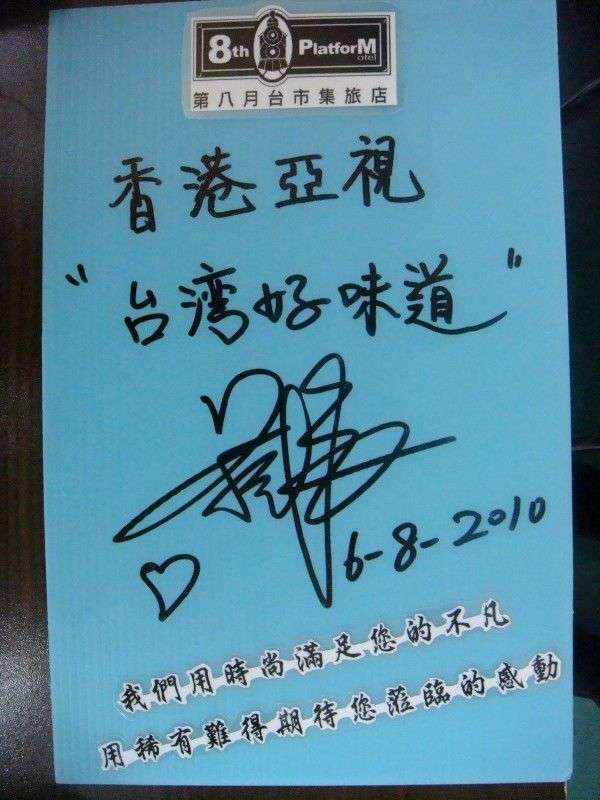 8th PlatforM
otel
第八月台市集旅店
香港亞視
"台湾好味道"
6-8-2010
我們用時尚滿足您的不凡
用稀有難得期待您蒞臨的感動